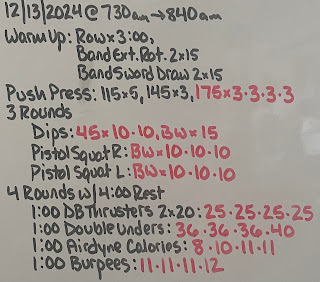 12/13/2024 @ 730am → 840am
Warm Up: Row x 3:00,
Band Ext. Rot. 2x15
Band Sword Draw 2x15
Push Press: 115x5, 145x3, 175x3·3·3·3
3 Rounds
Dips: 45x10·10, BW x 15
Pistol Squat R: BW x 10·10·10
Pistol Squat L: BW x 10·10·10
4 Rounds w/ 4:00 Rest
1:00 DB Thrusters 2x20: 25·25·25·25
1:00 Double Unders: 36·36·36·40
1:00 Airdyne Calories: 8·10·11·11
1:00 Burpees: 11·11·11·12